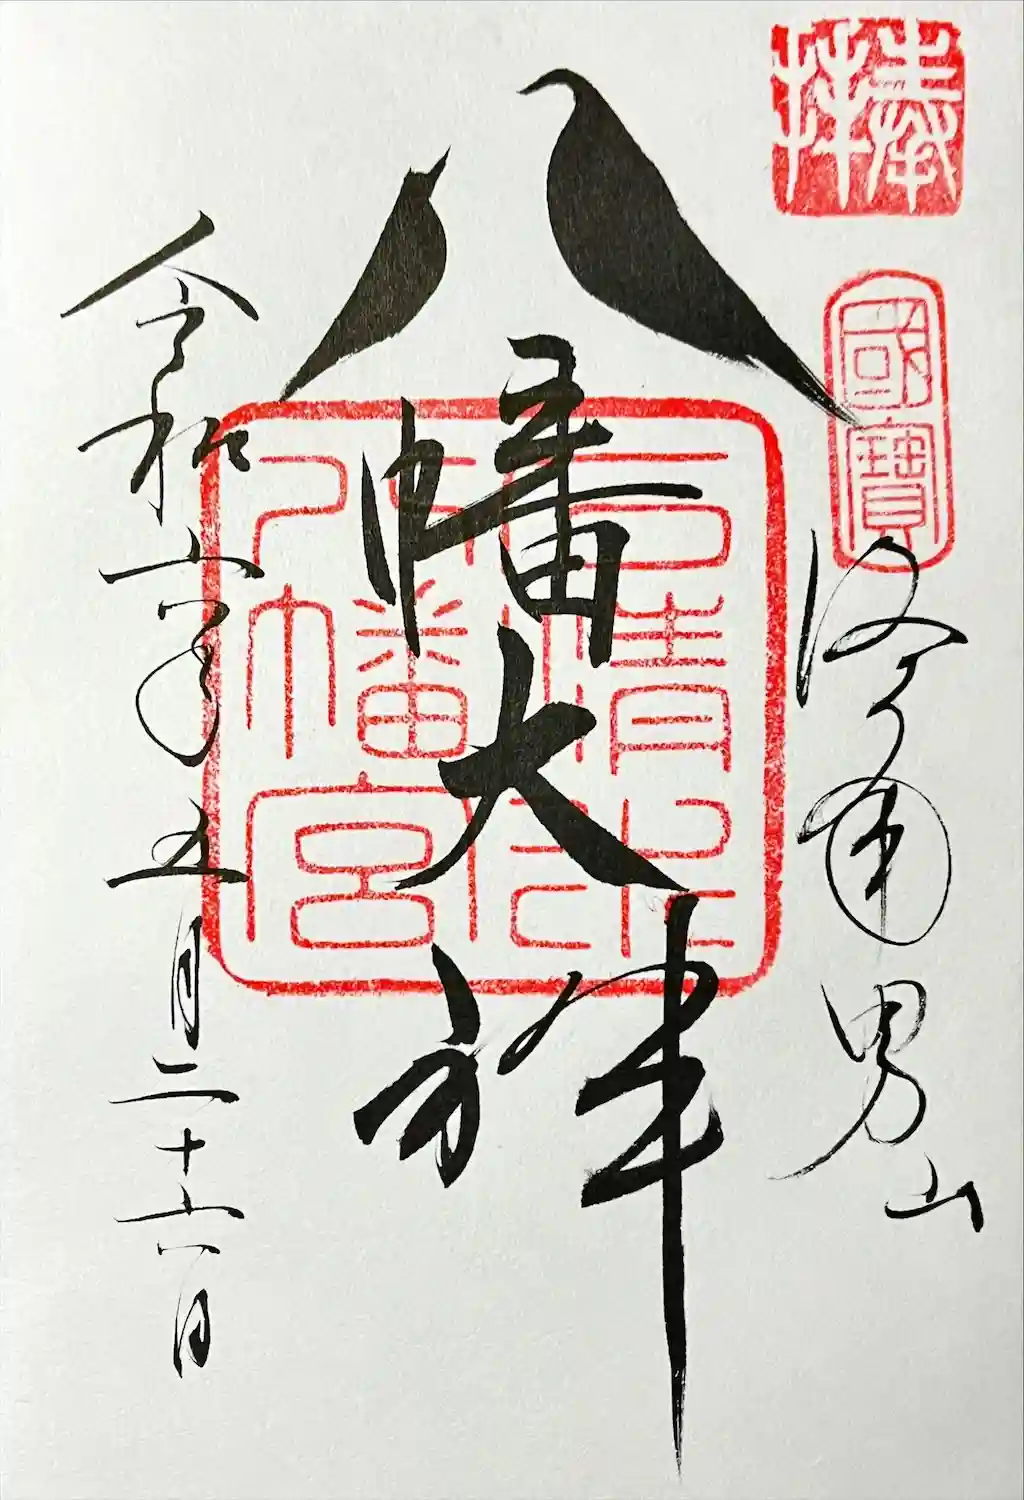 奉拝
國寶
洛南男山
八幡大神
石清水
八幡宮
令和六年五月二十六日